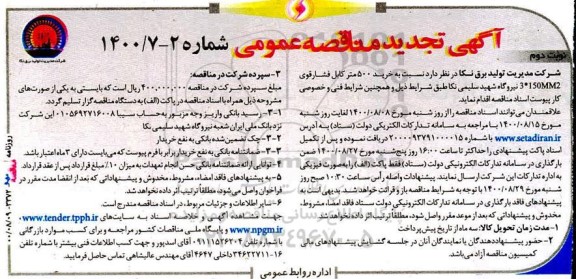 آگهی تجدید مناقصه عمومی شماره ۲-۱۴۰۰/۷
نوبت دوم
شرکت مدیریت تولید برق نکا در نظر دارد نسبت به خرید ۵۰۰ متر کابل فشار قوی
3*150MM2 نیروگاه شهید سلیمی نکا طبق شرایط ذیل و همچنین شرایط فنی و خصوصی
کار پیوست اسناد مناقصه اقدام نماید.
علاقمندان می‌توانند اسناد مناقصه را از روز شنبه مورخ ۱۴۰۰/۰۸/۰۸ لغایت روز شنبه
مورخ ۱۴۰۰/۰۸/۱۵ با مراجعه به سامانه تدارکات الکترونیکی دولت (ستاد) به آدرس
www.setadiran.ir با شماره ۲۰۰۰۰۹۳۷۹۱۰۰۰۰۱۵ دریافت نموده و پس از تکمیل
اسناد پاکت پیشنهادی را حداکثر تا ساعت ۱۶:۰۰ روز پنج‌شنبه مورخ ۱۴۰۰/۰۸/۲۷ ضمن
بارگذاری در سامانه تدارکات الکترونیکی دولت (ستاد) فقط پاکت (الف) را بصورت فیزیکی
به اداره تدارکات این شرکت ارسال نمایند. پیشنهادات واصله رأس ساعت ۱۰:۳۰ صبح روز
شنبه مورخ ۱۴۰۰/۰۸/۲۹ با توجه به شرایط مناقصه باز و قرائت خواهند شد. بدیهی است به
پیشنهادهای فاقد بارگذاری در سامانه تدارکات الکترونیکی دولت ستاد فاقد امضاء، مشروط،
مخدوش و پیشنهاداتی که بعد از موعد مقرر واصل شود، مطلقاً ترتیب اثر داده نخواهد شد.
۱-مدت زمان تحویل کالا: سه ماه از تاریخ پیش‌پرداخت
۲-حضور پیشنهاددهندگان یا نمایندگان آنان در جلسه گشایش پیشنهادهای مالی
کمیسیون مناقصه آزاد می‌باشد.
۳-سپرده شرکت در مناقصه:
مبلغ سپرده شرکت در مناقصه ۴۰۰,۰۰۰,۰۰۰ ریال است که بایستی به یکی از صورت‌های
مشروحه ذیل همراه با اسناد مناقصه در پاکت (الف) به دستگاه مناقصه گزار تسلیم گردد.
۱-۳-رسید بانکی واریز وجه مزبور به حساب سیبا ۰۱۰۵۶۹۲۷۱۶۰۰۸ این شرکت
نزد بانک ملی ایران شعبه نیروگاه شهید سلیمی نکا
۲-۳-چک تضمین شده بانکی به نفع خریدار
۳-۳-ضمانتنامه بانکی به نفع خریدار برابر با فرم پیوست که می‌بایست دارای ۳ ماه اعتبار باشد.
۵-به پیشنهادهای فاقد امضاء، مشروط، مخدوش و پیشنهاداتی که بعد از انقضا مدت مقرر در
فراخوان واصل می‌شود، مطلقاً ترتیب اثر داده نخواهد شد.
۶-سایر اطلاعات و جزئیات مربوط، در اسناد مناقصه مندرج است.
www.tender.tpph.ir
www.npgm.ir و پایگاه ملی مناقصات کشور مراجعه و برای کسب موارد بازرگانی
با شماره تلفن ۰۹۱۱۱۵۲۶۲۰۴ آقای اسدپور و جهت کسب اطلاعات فنی بیشتر با شماره تلفن
۳۴۶۲۲۷۱۱-۱۶ داخلی ۴۶۴۷ آقای مهندس عالیشاهی تماس حاصل فرمایید.
اداره روابط عمومی